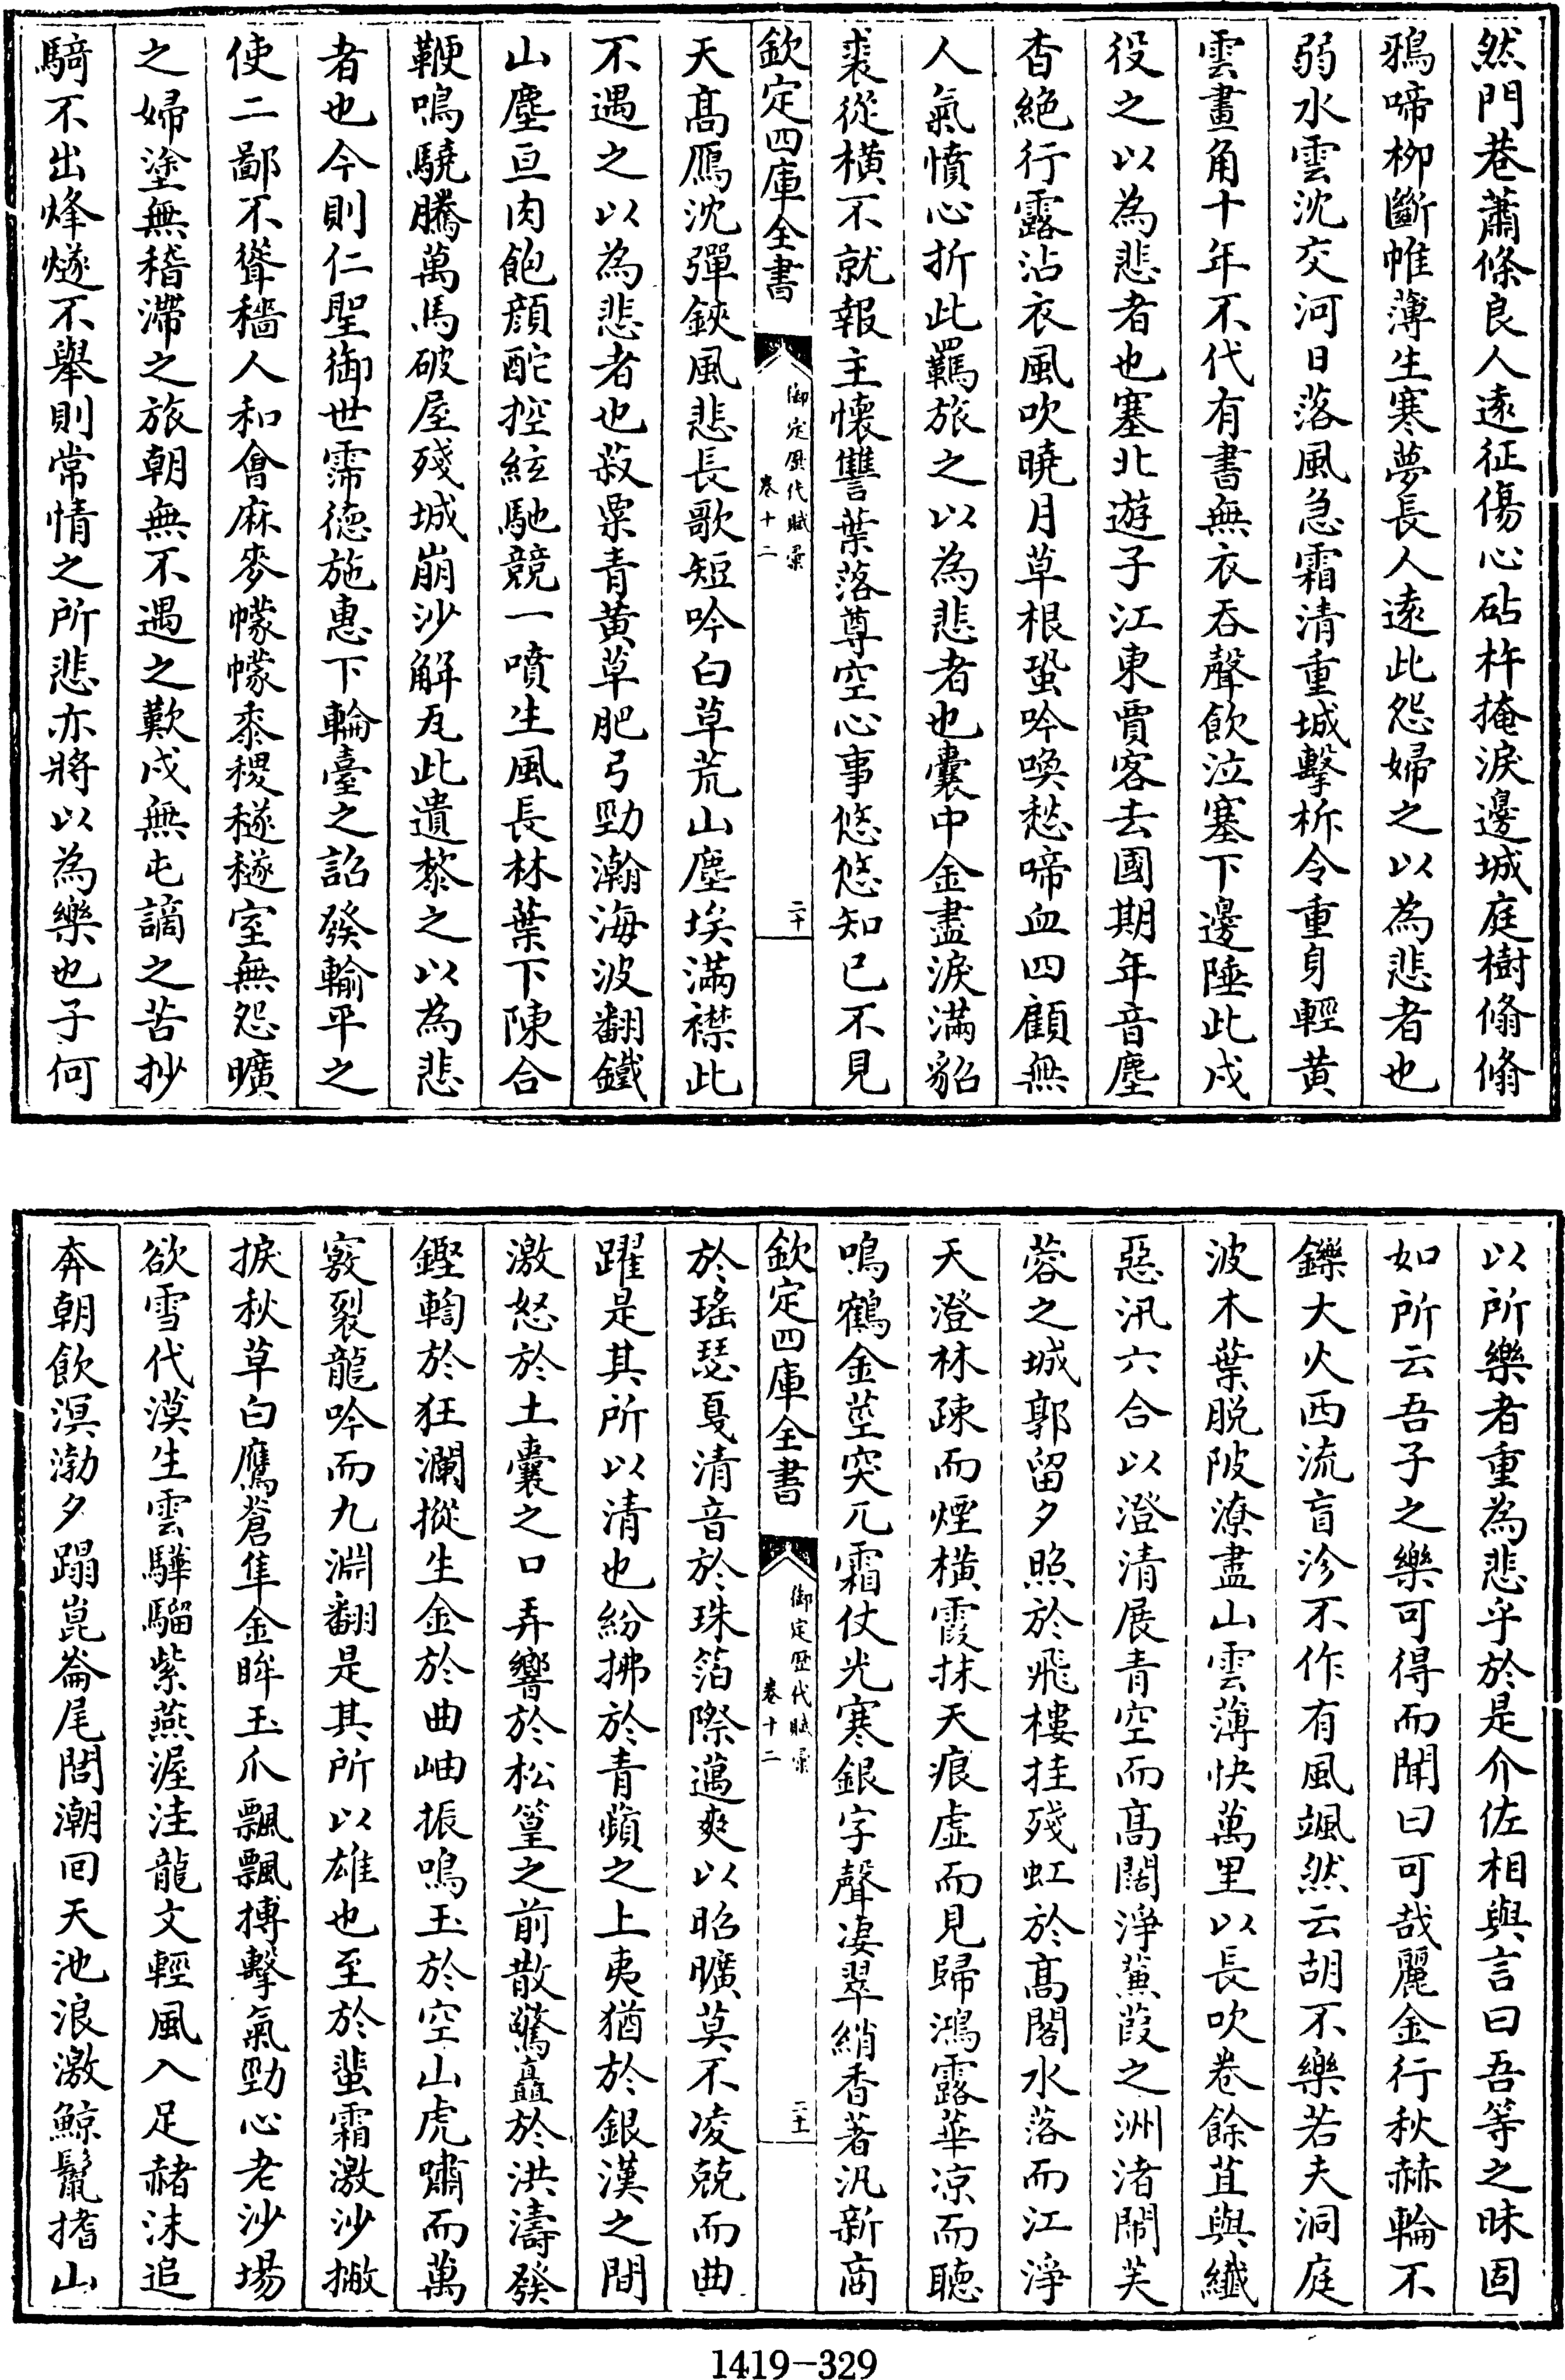 然門巷蕭條良人逺征傷心砧杵掩淚邊城庭樹翛翛
鴉啼栁斷帷薄生寒夢長人逺此怨婦之以為悲者也
弱水雲沈交河日落風急霜清重城擊柝令重身輕黄
雲畫角十年不代有書無衣吞聲飲泣塞下邊陲此戍
役之以為悲者也塞北遊子江東賈客去國期年音塵
杳絶行露沾衣風吹曉月草根蛩吟喚愁啼血四顧無
人氣憤心折此羈旅之以為悲者也囊中金盡淚滿貂
裘從橫不就報主懷讐葉落尊空心事悠悠知已不見
欽定四庫全書
御定歴代賦彚
卷十二
二十
天髙鴈沈彈鋏風悲長歌短吟白草荒山塵埃滿襟此
不遇之以為悲者也菽粟青黄草肥弓勁瀚海波翻鐵
山塵亘肉飽顔酡控絃馳競一噴生風長林葉下陳合
鞭鳴驍騰萬馬破屋殘城崩沙解瓦此遺黎之以為悲
者也今則仁聖御世霈德施惠下輪臺之詔發輸平之
使二鄙不聳穡人和㑹麻麥幪幪黍稷穟穟室無怨曠
之婦塗無稽滯之旅朝無不遇之歎戍無屯謫之苦抄
騎不出烽燧不舉則常情之所悲亦將以為樂也子何
以所樂者重為悲乎於是介佐相與言曰吾等之昧固
如所云吾子之樂可得而聞曰可哉麗金行秋赫輪不
鑠大火西流盲沴不作有風颯然云胡不樂若夫洞庭
波木葉脱陂潦盡山雲薄快萬里以長吹卷餘苴與纖
惡汛六合以澄清展青空而髙闊淨蒹葭之洲渚閙芙
蓉之城郭留夕照於飛樓挂殘虹於髙閣水落而江淨
天澄林疎而煙橫霞抹天痕虚而見歸鴻露華凉而聽
鳴鶴金莖突兀霜仗光寒銀字聲凄翠綃香著汎新商
欽定四庫全書
御定歴代賦彚
卷十二
二十一
於瑤瑟戞清音於珠箔際邁爽以昭曠莫不凌兢而曲
躍是其所以清也紛拂於青蘋之上夷猶於銀漢之間
激怒於土囊之口弄響於松篁之前散驚矗於洪濤發
鏗輷於狂瀾摐生金於曲岫振鳴玉於空山虎嘯而萬
竅裂龍吟而九淵翻是其所以雄也至於蜚霜激沙撇
捩秋草白鷹蒼隼金眸玉爪飄飄搏擊氣勁心老沙場
欲雪代漠生雲驊騮紫燕渥洼龍文輕風入足赭沫追
奔朝飲溟渤夕蹋崑崙尾閭潮囘天池浪激鯨鬛揸山
1419-329